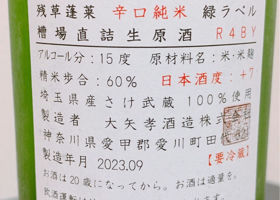 残草蓬莱 辛口純米 緑ラベル
槽場直詰生原酒 R4BY
アルコール分：15度 原材料名：米・米麹
精米歩合：60% 日本酒度：+7
埼玉県産さけ武蔵 100%使用
製造者 大矢孝酒造株式会
神奈川県愛甲郡愛川町田代
製造年月 2023.09 【要冷蔵】
お酒は20歳になってから。お酒は適量を。
飲酒運転は